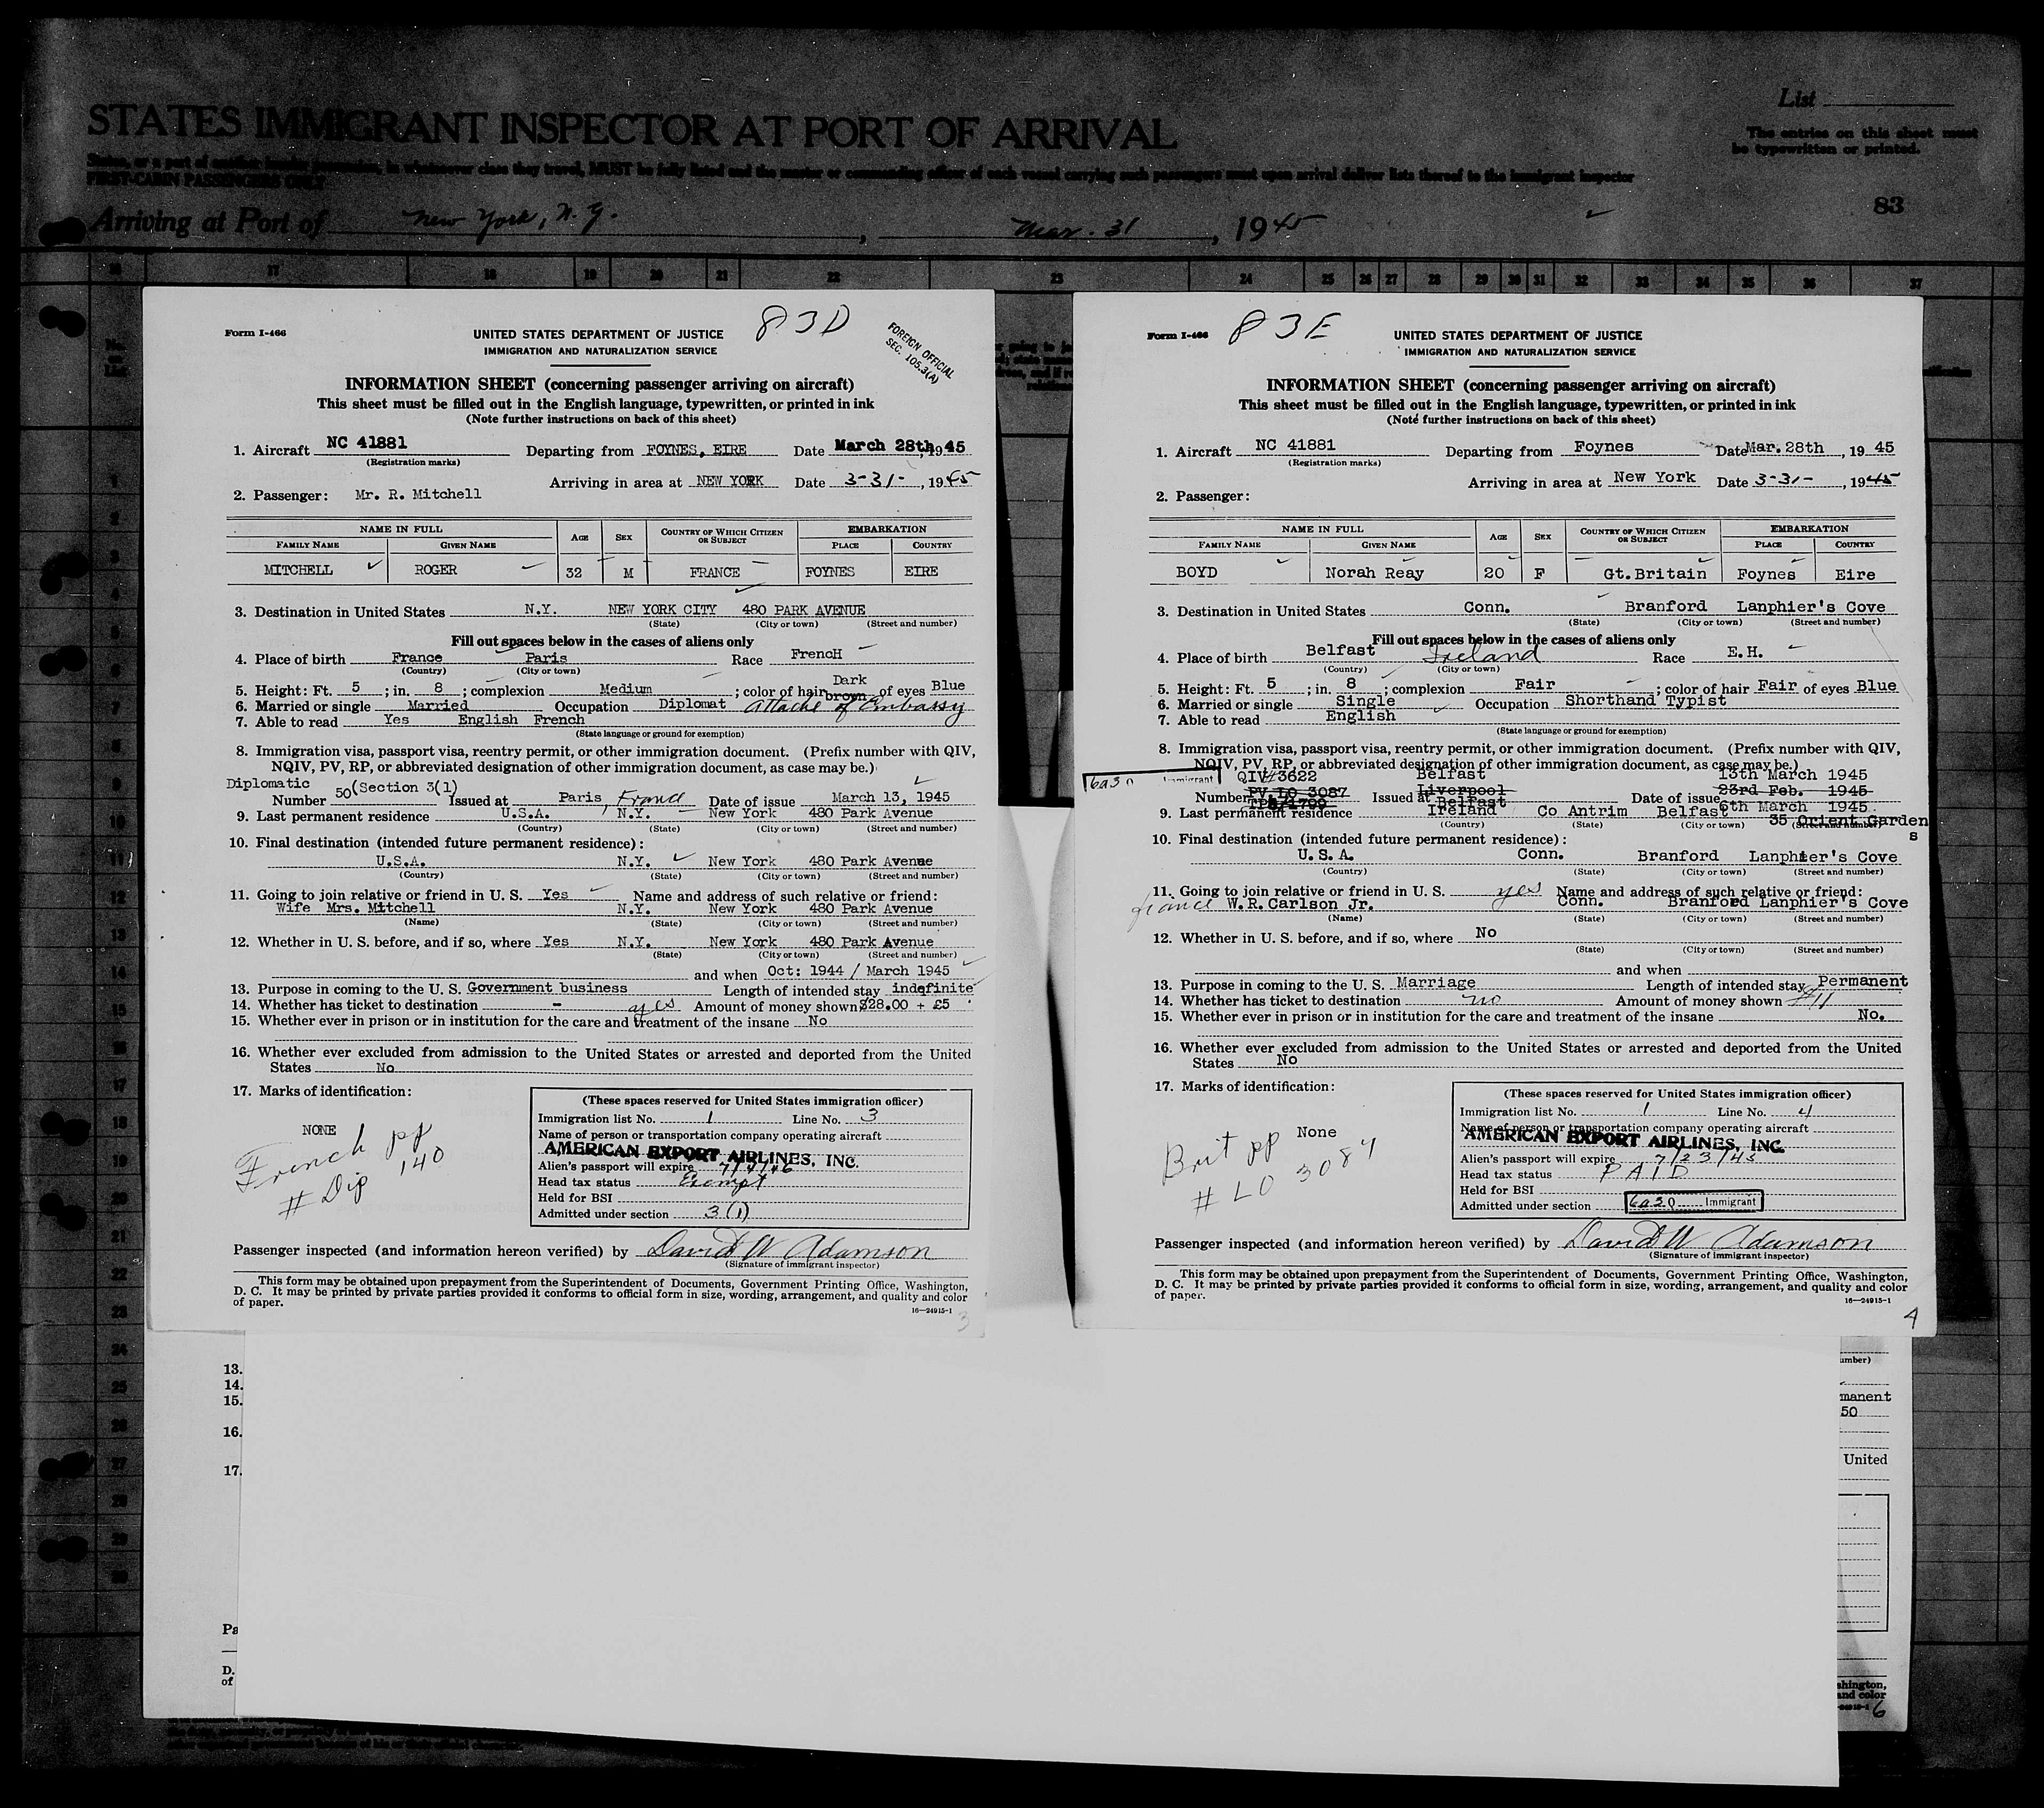 STATES IMMIGRANT INSPECTOR AT PORT OF ARRIVAL
List
The entries on this sheet must
be typewritten or printed.
States, or a part of another insular possession, in whatsoever class they travel, MUST be fully listed and the master or commanding officer of each vessel carrying such passengers must upon arrival deliver lists thereof to the immigrant inspector
FIRST-CABIN PASSENGERS ONLY
Arriving at Port of New York, N.Y., Mar. 31, 1945
83
16 17 18 19 20 21 22 23 24 25 26 27 28 29 30 31 32 33 34 35 36 37
Form I-466
83D
UNITED STATES DEPARTMENT OF JUSTICE
IMMIGRATION AND NATURALIZATION SERVICE
FOREIGN OFFICIAL
SEC. 105.3(A)
INFORMATION SHEET (concerning passenger arriving on aircraft)
This sheet must be filled out in the English language, typewritten, or printed in ink
(Note further instructions on back of this sheet)
1. Aircraft NC 41881 Departing from FOYNES, EIRE Date March 28th, 1945
(Registration marks)
Arriving in area at NEW YORK Date 3-31-, 1945
2. Passenger: Mr. R. Mitchell
NAME IN FULL AGE SEX COUNTRY OF WHICH CITIZEN OR SUBJECT EMBARKATION
FAMILY NAME GIVEN NAME PLACE COUNTRY
MITCHELL ROGER 32 M FRANCE FOYNES EIRE
3. Destination in United States N.Y. NEW YORK CITY 480 PARK AVENUE
(State) (City or town) (Street and number)
Fill out spaces below in the cases of aliens only
4. Place of birth France Paris Race FrencH
(Country) (City or town)
5. Height: Ft. 5; in. 8; complexion Medium; color of hair Dark brown of eyes Blue
6. Married or single Married Occupation Diplomat Attaché of Embassy
7. Able to read Yes English French
(State language or ground for exemption)
8. Immigration visa, passport visa, reentry permit, or other immigration document. (Prefix number with QIV,
NQIV, PV, RP, or abbreviated designation of other immigration document, as case may be.)
Diplomatic
Number 50 (Section 3(1) Issued at Paris, France Date of issue March 13, 1945
9. Last permanent residence U.S.A. N.Y. New York 480 Park Avenue
(Country) (State) (City or town) (Street and number)
10. Final destination (intended future permanent residence):
U.S.A. N.Y. New York 480 Park Avenue
(Country) (State) (City or town) (Street and number)
11. Going to join relative or friend in U. S. Yes Name and address of such relative or friend:
Wife Mrs. Mitchell N.Y. New York 480 Park Avenue
(Name) (State) (City or town) (Street and number)
12. Whether in U. S. before, and if so, where Yes N.Y. New York 480 Park Avenue
(State) (City or town) (Street and number)
and when Oct: 1944 / March 1945
13. Purpose in coming to the U. S. Government business Length of intended stay indefinite
14. Whether has ticket to destination - yes Amount of money shown $28.00 + £5
15. Whether ever in prison or in institution for the care and treatment of the insane No
16. Whether ever excluded from admission to the United States or arrested and deported from the United
States No
17. Marks of identification:
NONE
French pp
# Dip 140
(These spaces reserved for United States immigration officer)
Immigration list No. 1 Line No. 3
Name of person or transportation company operating aircraft
AMERICAN EXPORT AIRLINES, INC.
Alien's passport will expire 7/4/46
Head tax status Exempt
Held for BSI
Admitted under section 3(1)
Passenger inspected (and information hereon verified) by David W Adamson
(Signature of immigrant inspector)
This form may be obtained upon prepayment from the Superintendent of Documents, Government Printing Office, Washington,
D. C. It may be printed by private parties provided it conforms to official form in size, wording, arrangement, and quality and color
of paper.
16—24915-1
3
Form I-466
83E
UNITED STATES DEPARTMENT OF JUSTICE
IMMIGRATION AND NATURALIZATION SERVICE
INFORMATION SHEET (concerning passenger arriving on aircraft)
This sheet must be filled out in the English language, typewritten, or printed in ink
(Note further instructions on back of this sheet)
1. Aircraft NC 41881 Departing from Foynes Date Mar. 28th, 1945
(Registration marks)
Arriving in area at New York Date 3-31-, 1945
2. Passenger:
NAME IN FULL AGE SEX COUNTRY OF WHICH CITIZEN OR SUBJECT EMBARKATION
FAMILY NAME GIVEN NAME PLACE COUNTRY
BOYD Norah Reay 20 F Gt.Britain Foynes Eire
3. Destination in United States Conn. Branford Lanphier's Cove
(State) (City or town) (Street and number)
Fill out spaces below in the cases of aliens only
4. Place of birth Belfast Ireland Race E.H.
(Country) (City or town)
5. Height: Ft. 5; in. 8; complexion Fair; color of hair Fair of eyes Blue
6. Married or single Single Occupation Shorthand Typist
7. Able to read English
(State language or ground for exemption)
8. Immigration visa, passport visa, reentry permit, or other immigration document. (Prefix number with QIV,
NQIV, PV, RP, or abbreviated designation of other immigration document, as case may be.)
6a3 Immigrant QIV#3622 Belfast 13th March 1945
Number PV LO 3087 Issued at Liverpool Date of issue 23rd Feb. 1945
Belfast 6th March 1945
9. Last permanent residence Ireland Co Antrim Belfast 35 Orient Gardens
(Country) (State) (City or town) (Street and number)
10. Final destination (intended future permanent residence):
U. S. A. Conn. Branford Lanphier's Cove
(Country) (State) (City or town) (Street and number)
11. Going to join relative or friend in U. S. yes Name and address of such relative or friend:
fiance W.R. Carlson Jr. Conn. Branford Lanphier's Cove
(Name) (State) (City or town) (Street and number)
12. Whether in U. S. before, and if so, where No
(State) (City or town) (Street and number)
and when
13. Purpose in coming to the U. S. Marriage Length of intended stay Permanent
14. Whether has ticket to destination no Amount of money shown $11
15. Whether ever in prison or in institution for the care and treatment of the insane No.
16. Whether ever excluded from admission to the United States or arrested and deported from the United
States No
17. Marks of identification:
None
Brit pp
# LO 3087
(These spaces reserved for United States immigration officer)
Immigration list No. 1 Line No. 4
Name of person or transportation company operating aircraft
AMERICAN EXPORT AIRLINES, INC.
Alien's passport will expire 7/23/45
Head tax status PAID
Held for BSI
Admitted under section 6a3 Immigrant
Passenger inspected (and information hereon verified) by David W Adamson
(Signature of immigrant inspector)
This form may be obtained upon prepayment from the Superintendent of Documents, Government Printing Office, Washington,
D. C. It may be printed by private parties provided it conforms to official form in size, wording, arrangement, and quality and color
of paper.
16—24915-1
4
13.
14.
15.
16.
17.
Pa
D.
of
umber)
manent
50
United
shington,
and color
6